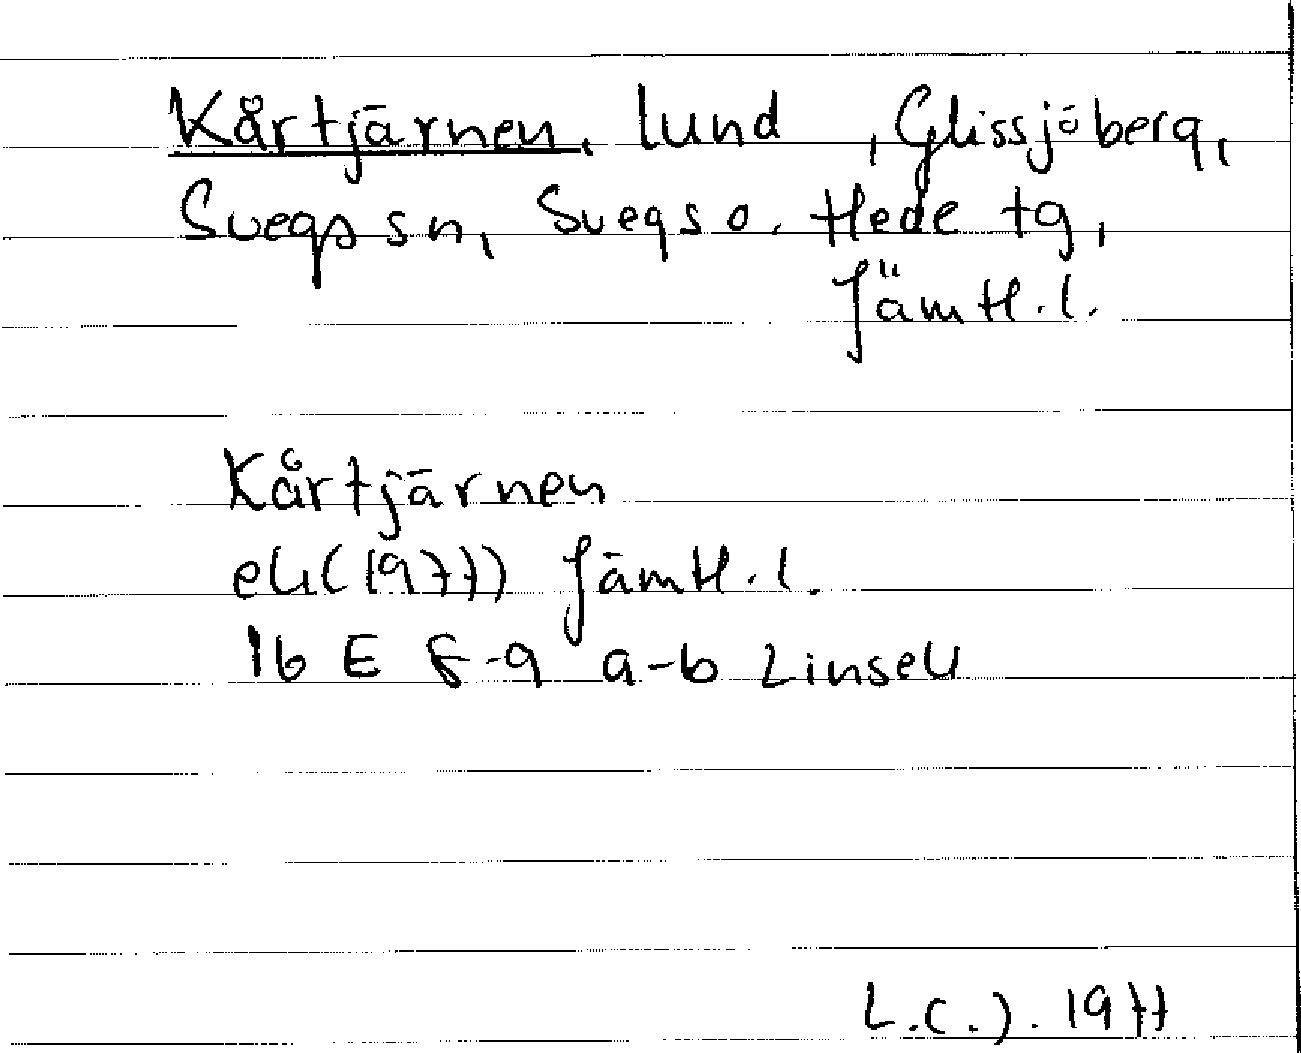 Kårtjärnen, lund , Glissjöberg,
Svegs sn, Svegs o. Hede tg,
Jämtl. l.
Kårtjärnen
ek(1977) Jämtl. l.
16 E 8-9 a-b Linsell
L.C.J. 1977